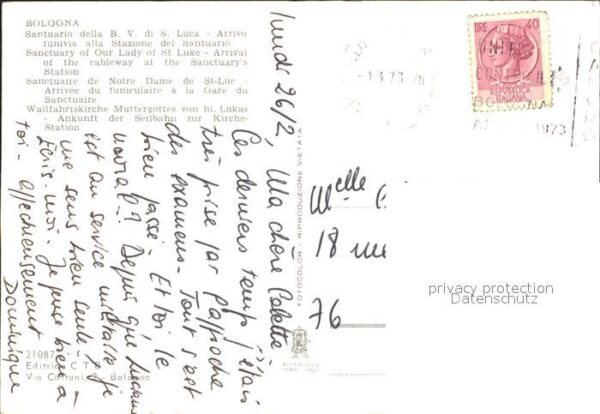 BOLOGNA
Santuario della B. V. di S. Luca - Arrivo
funivia alla Stazione del Santuario
Sanctuary of Our Lady of St Luke - Arrival
of the cableway at the Sanctuary's
Station
Sanctuaire de Notre Dame de St-Luc -
Arrivée du funiculaire à la Gare du
Sanctuaire
Wallfahrtskirche Muttergottes von hl. Lukas
- Ankunft der Seilbahn zur Kirche-
Station
lundi 26/2,
Ma chère Colette
Ces derniers temps j'étais
très prise par l'approche
des examens. Tout s'est
bien passé. Et toi le
moral ? Depuis que
est au service militaire je
me sens bien seule.
Écris-moi. Je pense bien à
toi. affectueusement
Dominique
21087
Editrice C T B
Via Bologna
FOTOCOLOR - RIPRODUZIONE VIETATA
LIRE 40
REPVBBLICA
ITALIANA
1.3.73
1973
Melle
18 rue
76
privacy protection
Datenschutz